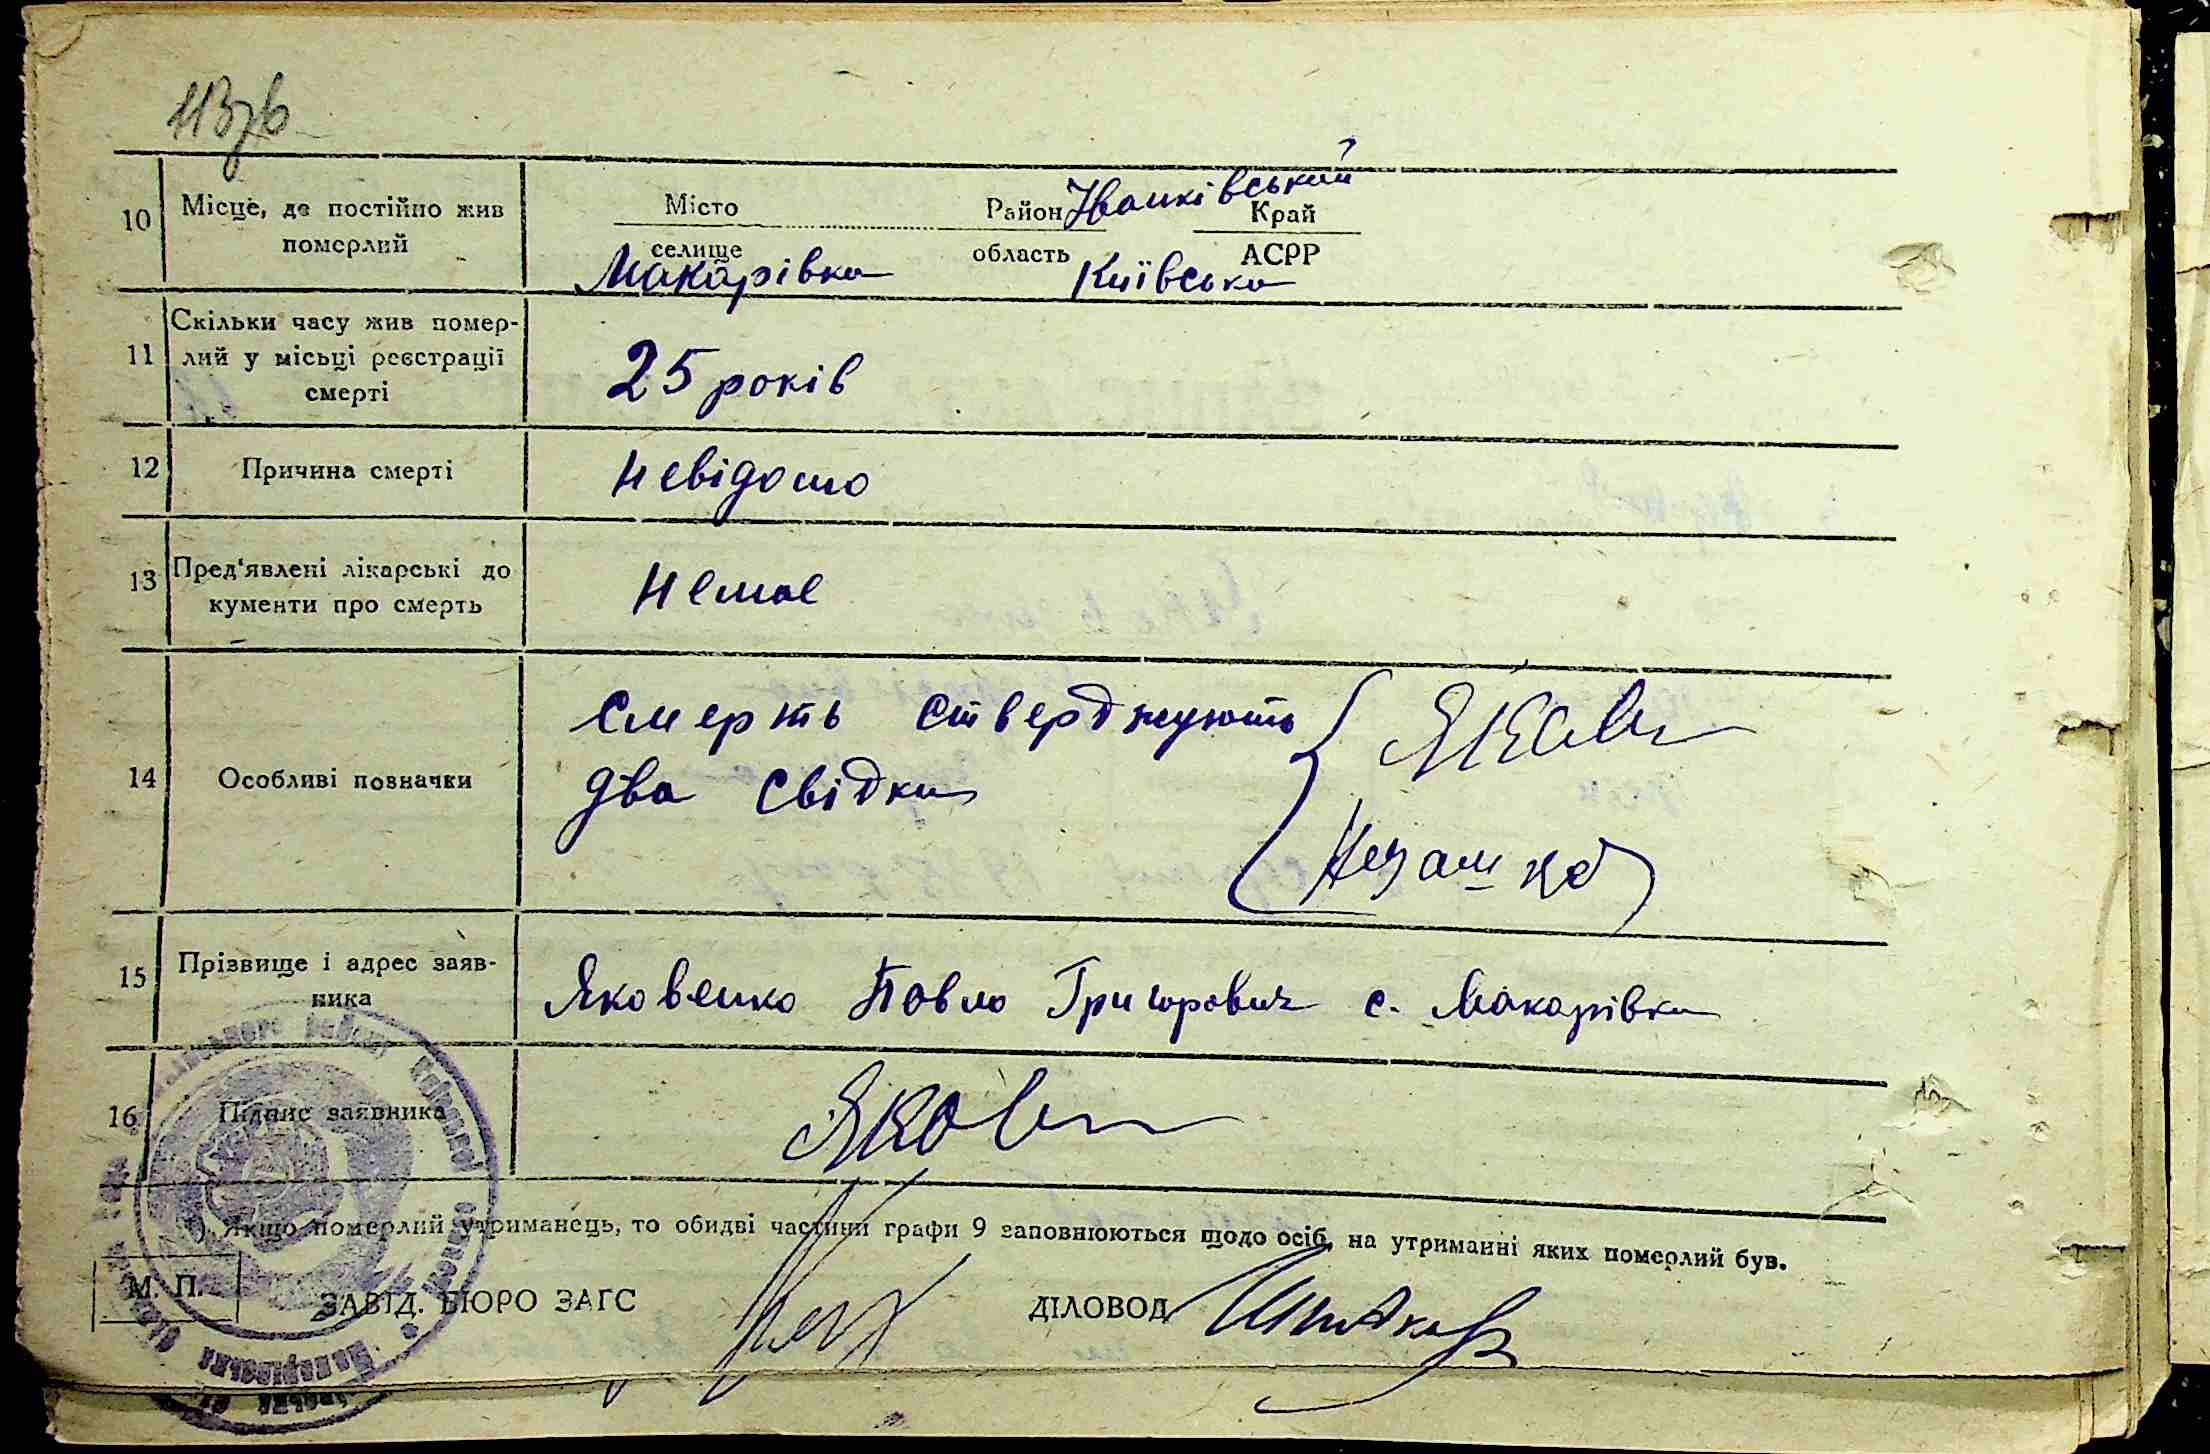 113зв
10 Місце, де постійно жив померлий Місто Район Іванківський Край
селище Макарівка область Київська АСРР
11 Скільки часу жив помер-
лий у місьці реєстрації
смерті
25 років
12 Причина смерті невідомо
13 Пред'явлені лікарські до
кументи про смерть
немає
14 Особливі позначки
смерть стверджують
два свідки
15 Прізвище і адрес заяв-
ника
Яковенко Павло Григорович с. Макарівка
16 Підпис заявника
Яков
*). Якщо померлий утриманець, то обидві частини графи 9 заповнюються щодо осіб, на утриманні яких померлий був.
М. П. ЗАВІД. БЮРО ЗАГС ДІЛОВОД